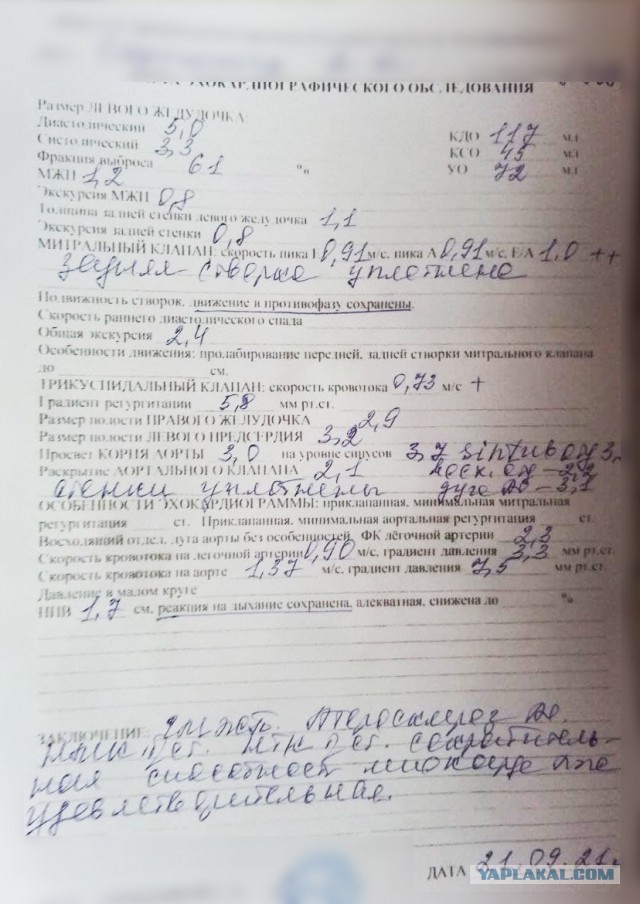 ЭХОКАРДИОГРАФИЧЕСКОГО ОБСЛЕДОВАНИЯ
Размер ЛЕВОГО ЖЕЛУДОЧКА:
Диастолический 5,0 КДО 117 мл
Систолический 3,3 КСО 45 мл
Фракция выброса 61 % УО 72 мл
МЖП 1,2
Экскурсия МЖП 0,8
Толщина задней стенки левого желудочка 1,1
Экскурсия задней стенки 0,8
МИТРАЛЬНЫЙ КЛАПАН: скорость пика Е 0,91 м/с, пика А 0,91 м/с, Е/А 1,0 ++
Задняя створка уплотнена
Подвижность створок, движение в противофазу сохранены.
Скорость раннего диастолического спада
Общая экскурсия 2,4
Особенности движения: пролабирование передней, задней створки митрального клапана
до см.
ТРИКУСПИДАЛЬНЫЙ КЛАПАН: скорость кровотока 0,73 м/с +
Градиент регургитации 5,8 мм рт.ст.
Размер полости ПРАВОГО ЖЕЛУДОЧКА 2,9
Размер полости ЛЕВОГО ПРЕДСЕРДИЯ 3,2
Просвет КОРНЯ АОРТЫ 3,0 на уровне синусов 3,7
Раскрытие АОРТАЛЬНОГО КЛАПАНА 2,1
стенки уплотнены дуга Ао - 3,1
ОСОБЕННОСТИ ЭХОКАРДИОГРАММЫ: приклапанная, минимальная митральная
регургитация ст. Приклапанная, минимальная аортальная регургитация ст.
Восходящий отдел, дуга аорты без особенностей. ФК лёгочной артерии 2,3
Скорость кровотока на легочной артерии 0,90 м/с, градиент давления 3,3 мм рт.ст.
Скорость кровотока на аорте 1,37 м/с, градиент давления 7,5 мм рт.ст.
Давление в малом круге
НПВ 1,7 см, реакция на дыхание сохранена, адекватная, снижена до %
ЗАКЛЮЧЕНИЕ: Атеросклероз Ао.
НМК I ст. НТК I ст. сократитель-
ная способность миокарда
удовлетворительная.
ДАТА 21.09.21
YAPLAKAL.COM